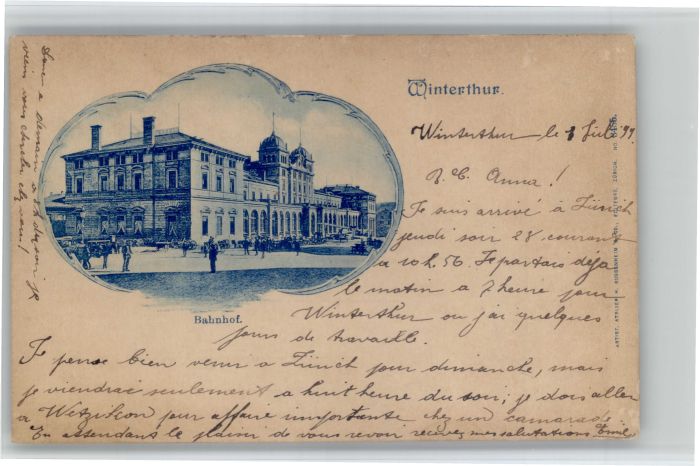 Winterthur.
Winterthur le 1 Juil 99
M. C. Anna!
Je suis arrivé à Zürich
jeudi soir 28 courant
a 10 h. 56. Je partais déja
le matin a 7 heure pour
Winterthur ou j'ai quelques
jours de travaille.
Bahnhof.
Je pense bien venir a Zürich pour dimanche, mais
je viendrai seulement a huit heure du soir; je dois aller
a Wetzikon pour affaire importante chez un camarade.
En attendant le plaisir de vous revoir recevez mes salutations Emil
Donc a demain a 8 h du soir je
viens vous chercher chez vous!
ARTIST. ATELIER H. GUGGENHEIM ZÜRICH. NO